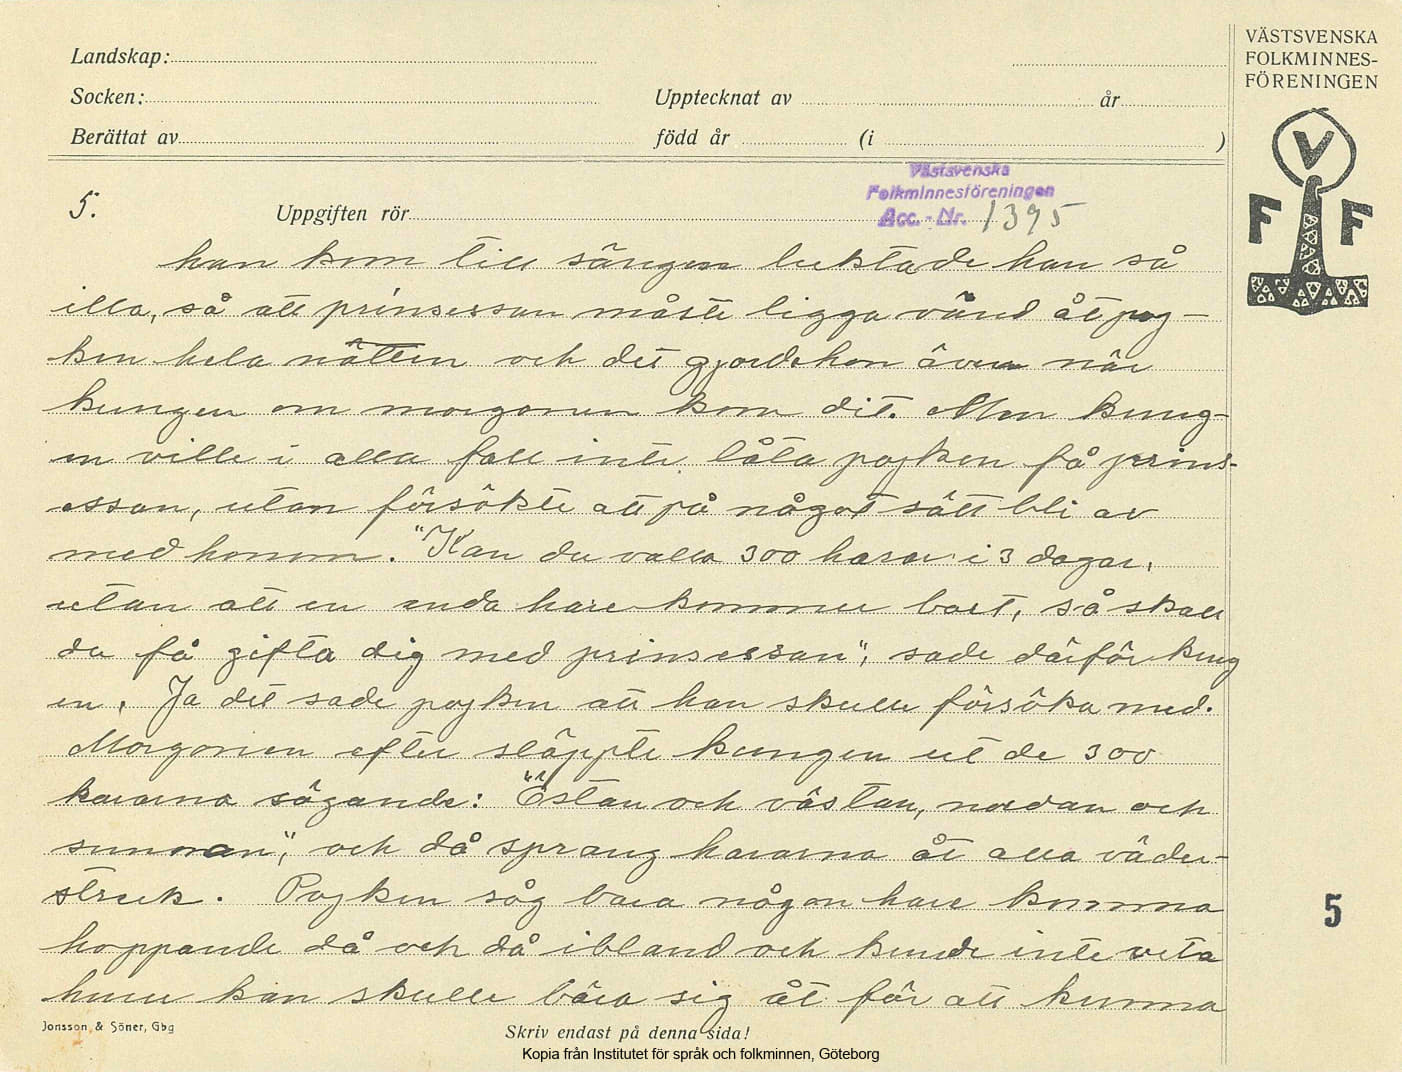 Landskap:
Socken: Upptecknat av år
Berättat av född år (i )
VÄSTSVENSKA
FOLKMINNES-
FÖRENINGEN
V
F F
Västsvenska
Folkminnesföreningen
Acc.-Nr. 1395
5. Uppgiften rör
han kom till sängen luktade han så
illa, så att prinsessan måste ligga vänd åt poj-
ken hela natten och det gjorde hon även när
kungen om morgonen kom dit. Men kung-
en ville i alla fall inte låta pojken få prins-
essan, utan försökte att på något sätt bli av
med honom. "Kan du valla 300 harar i 3 dagar,
utan att en enda hare kommer bort, så skall
du få gifta dig med prinsessan", sade därför kung
en. Ja det sade pojken att han skulle försöka med.
Morgonen efter släppte kungen ut de 300
hararna sägande: "Östan och västan, nordan och
sunnan", och då sprang hararna åt alla väder-
streck. Pojken såg bara någon hare komma
hoppande då och då ibland och kunde inte veta
huru han skulle bära sig åt för att kunna
5
Jonsson & Söner, Gbg
Skriv endast på denna sida!
Kopia från Institutet för språk och folkminnen, Göteborg